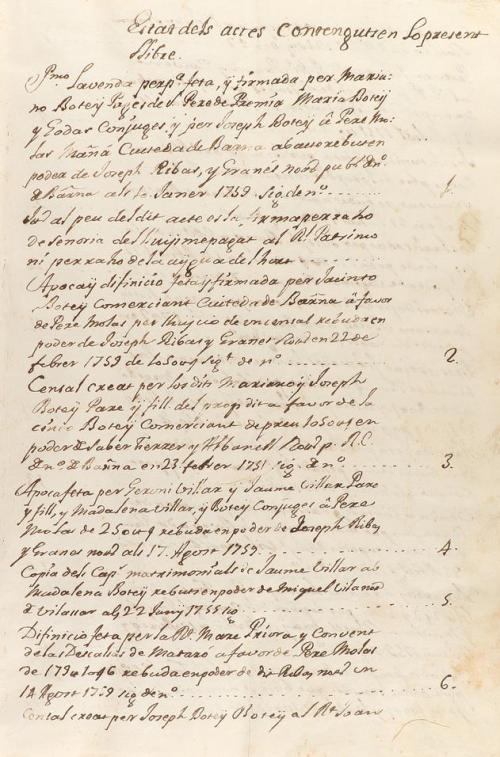 Estat dels actes Contenguts en Lo present
Llibre.
Pmo La venda perpa. feta, ÿ firmada per Maria:
no Boteÿ Pages de St Pere de Premia Maria Boteÿ
y Godas Conjuges, y per Joseph Boteÿ â Pere Mo:
las Mañá Ciutedá de Barna ab auto rebut en
poder de Joseph Ribas, y Granés notri publ. dno
de Barna als Janer 1759 sig. de no 1.
al peu del dit acte es la firma per raho
de señoria del lluysme pagat al Rl. Patrimo
ni per raho de la aygua del hort
Apoca ÿ difinicio feta ÿ firmada per Jacinto
Boteÿ Comerciant Ciutedá de Barna â favor
de Pere Molas per lluycio de un censal rebuda en
poder de Joseph Ribas y Granes Notri en 22 de
febrer 1759 de sigt de no 2.
Censal creat per los dits Mariano ÿ Joseph
Boteÿ Pare ÿ fill del propi dit a favor de
Boteÿ Comerciant de preu en
poder de Ferrer y Notp. R.C.
dno de Barna en 23 febrer 1751 sig. de no 3.
Apoca feta per Geroni Villar ÿ Jaume Villar Pare
y fill, y Madalena Villar, y Boteÿ Conjuges â Pere
Molas de rebuda en poder de Joseph Ribas
y Granes notri als 17. Agost 1759. 4.
Copia dels Capls matrimonials de Jaume Villar ab
Madalena Boteÿ rebuts en poder de Miquel
de Vilassar als 22 Juny 1755 5.
Difinicio feta per la Rt. Mare Priora y Convent
de las Descalsas de Mataró a favor de Pere Molas
de rebuda en poder de dit Ribas notri en
14 Agost 1759 sig de no 6.
Censal creat per Joseph Boteÿ Boteÿ al Rt Joan